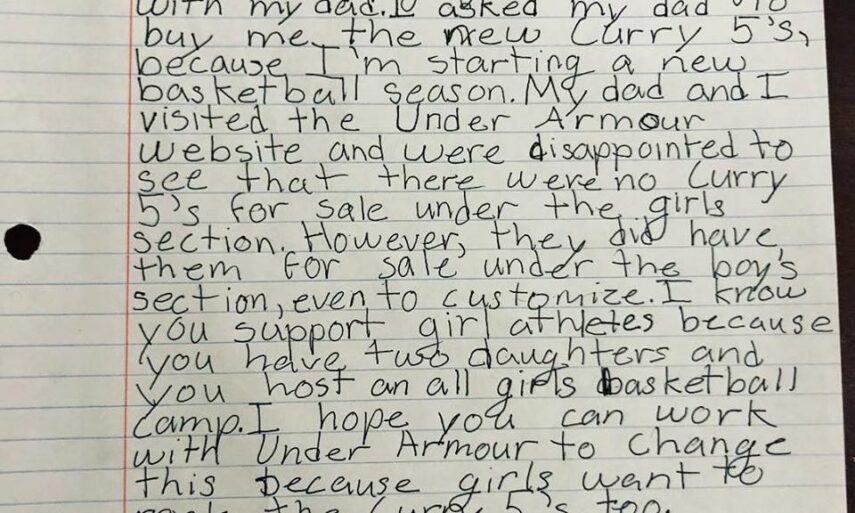 with my dad. I asked my dad to
buy me the new Curry 5's,
because I'm starting a new
basketball season. My dad and I
visited the Under Armour
website and were disappointed to
see that there were no Curry
5's for sale under the girls
section. However, they did have
them for sale under the boy's
section, even to customize. I know
you support girl athletes because
you have two daughters and
you host an all girls basketball
camp. I hope you can work
with Under Armour to change
this because girls want to
rock the Curry 5's too.